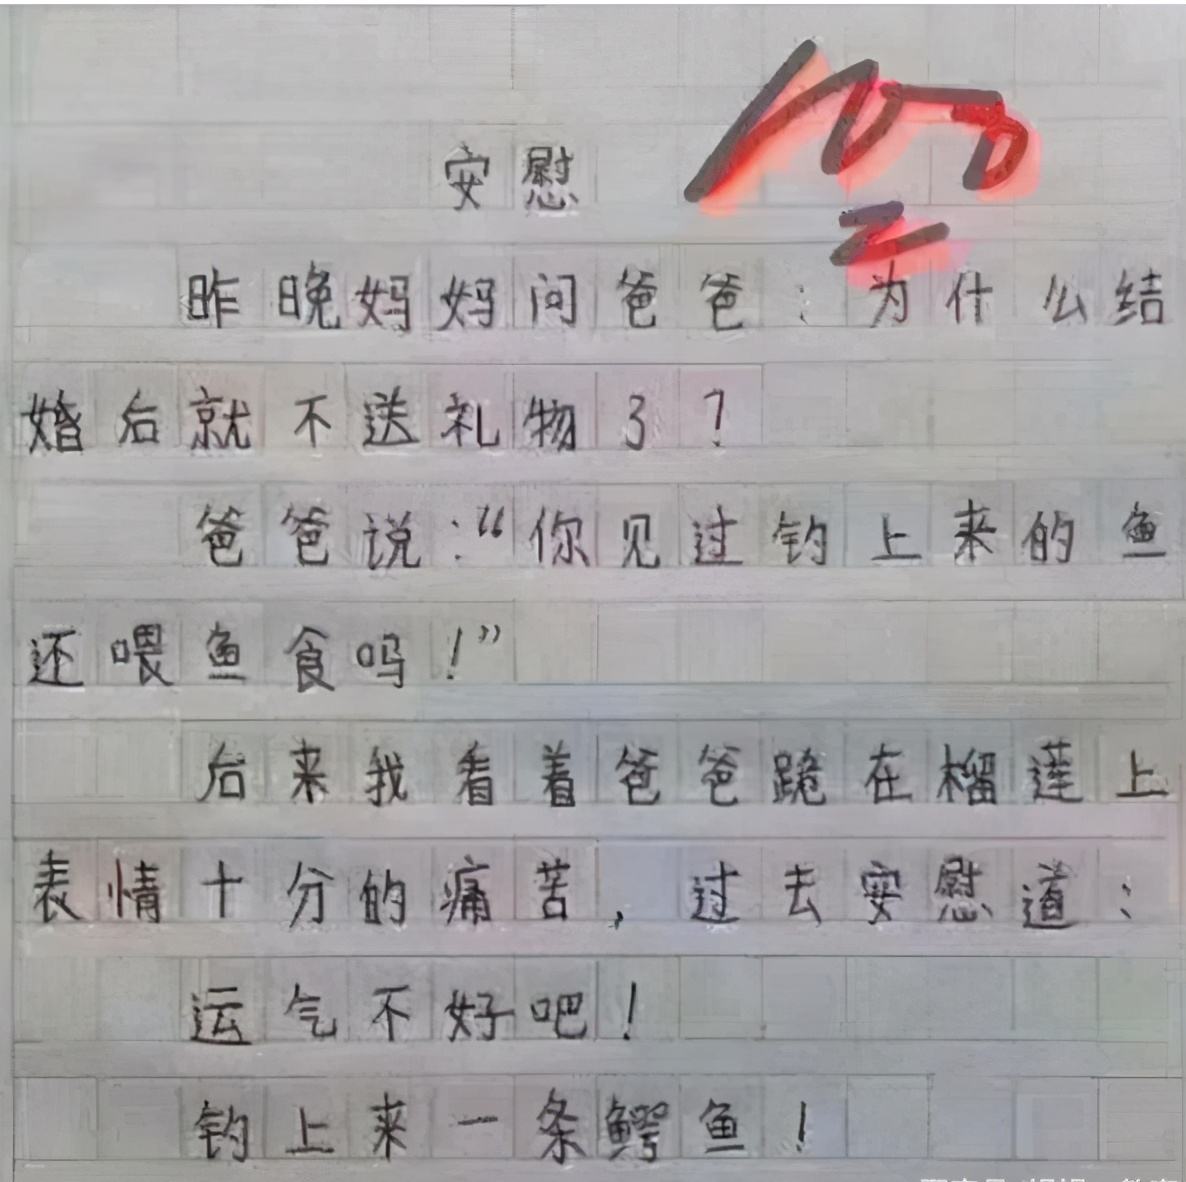 安慰
昨晚妈妈问爸爸：为什么结
婚后就不送礼物了？
爸爸说：“你见过钓上来的鱼
还喂鱼食吗！”
后来我看着爸爸跪在榴莲上
表情十分的痛苦，过去安慰道：
运气不好吧！
钓上来一条鳄鱼！